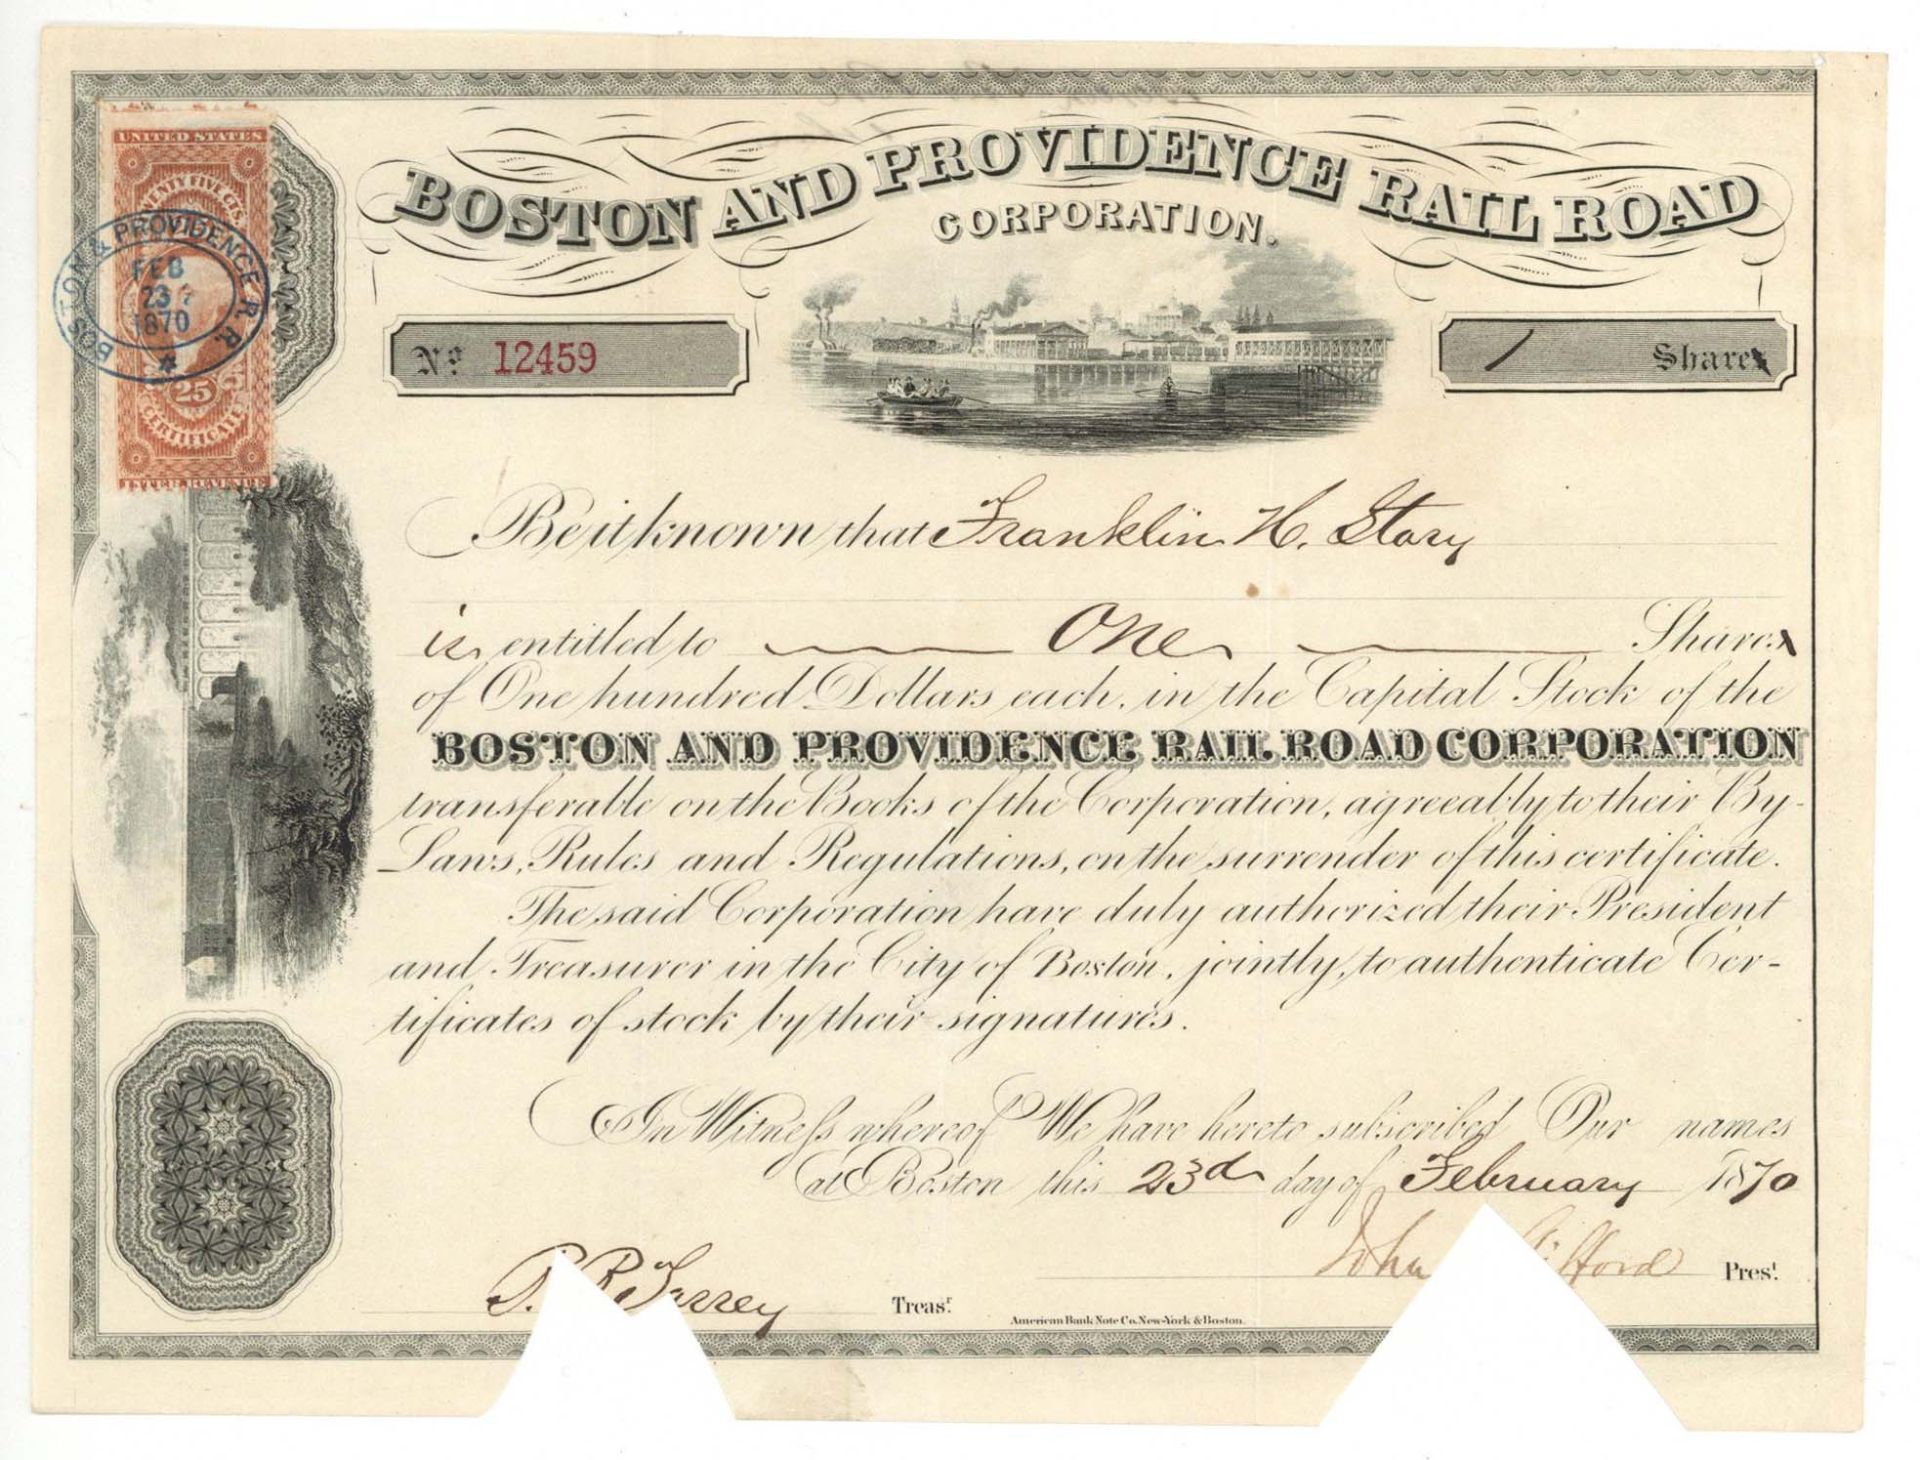 BOSTON AND PROVIDENCE RAIL ROAD
CORPORATION.
UNITED STATES
TWENTY FIVE CTS.
BOSTON & PROVIDENCE R. R.
FEB
23
1870
25
CERTIFICATE
INTER. REVENUE
No. 12459
1 Shares
Be it known that Franklin H. Story
is entitled to One Shares
of One hundred Dollars each, in the Capital Stock of the
BOSTON AND PROVIDENCE RAIL ROAD CORPORATION
transferable on the Books of the Corporation, agreeably to their By-
Laws, Rules and Regulations, on the surrender of this certificate.
The said Corporation have duly authorized their President
and Treasurer in the City of Boston, jointly, to authenticate Cer-
tificates of stock by their signatures.
In Witness whereof We have hereto subscribed Our names
at Boston this 23d day of February 1870
John Pres.t
Treas.r
American Bank Note Co. New-York & Boston.